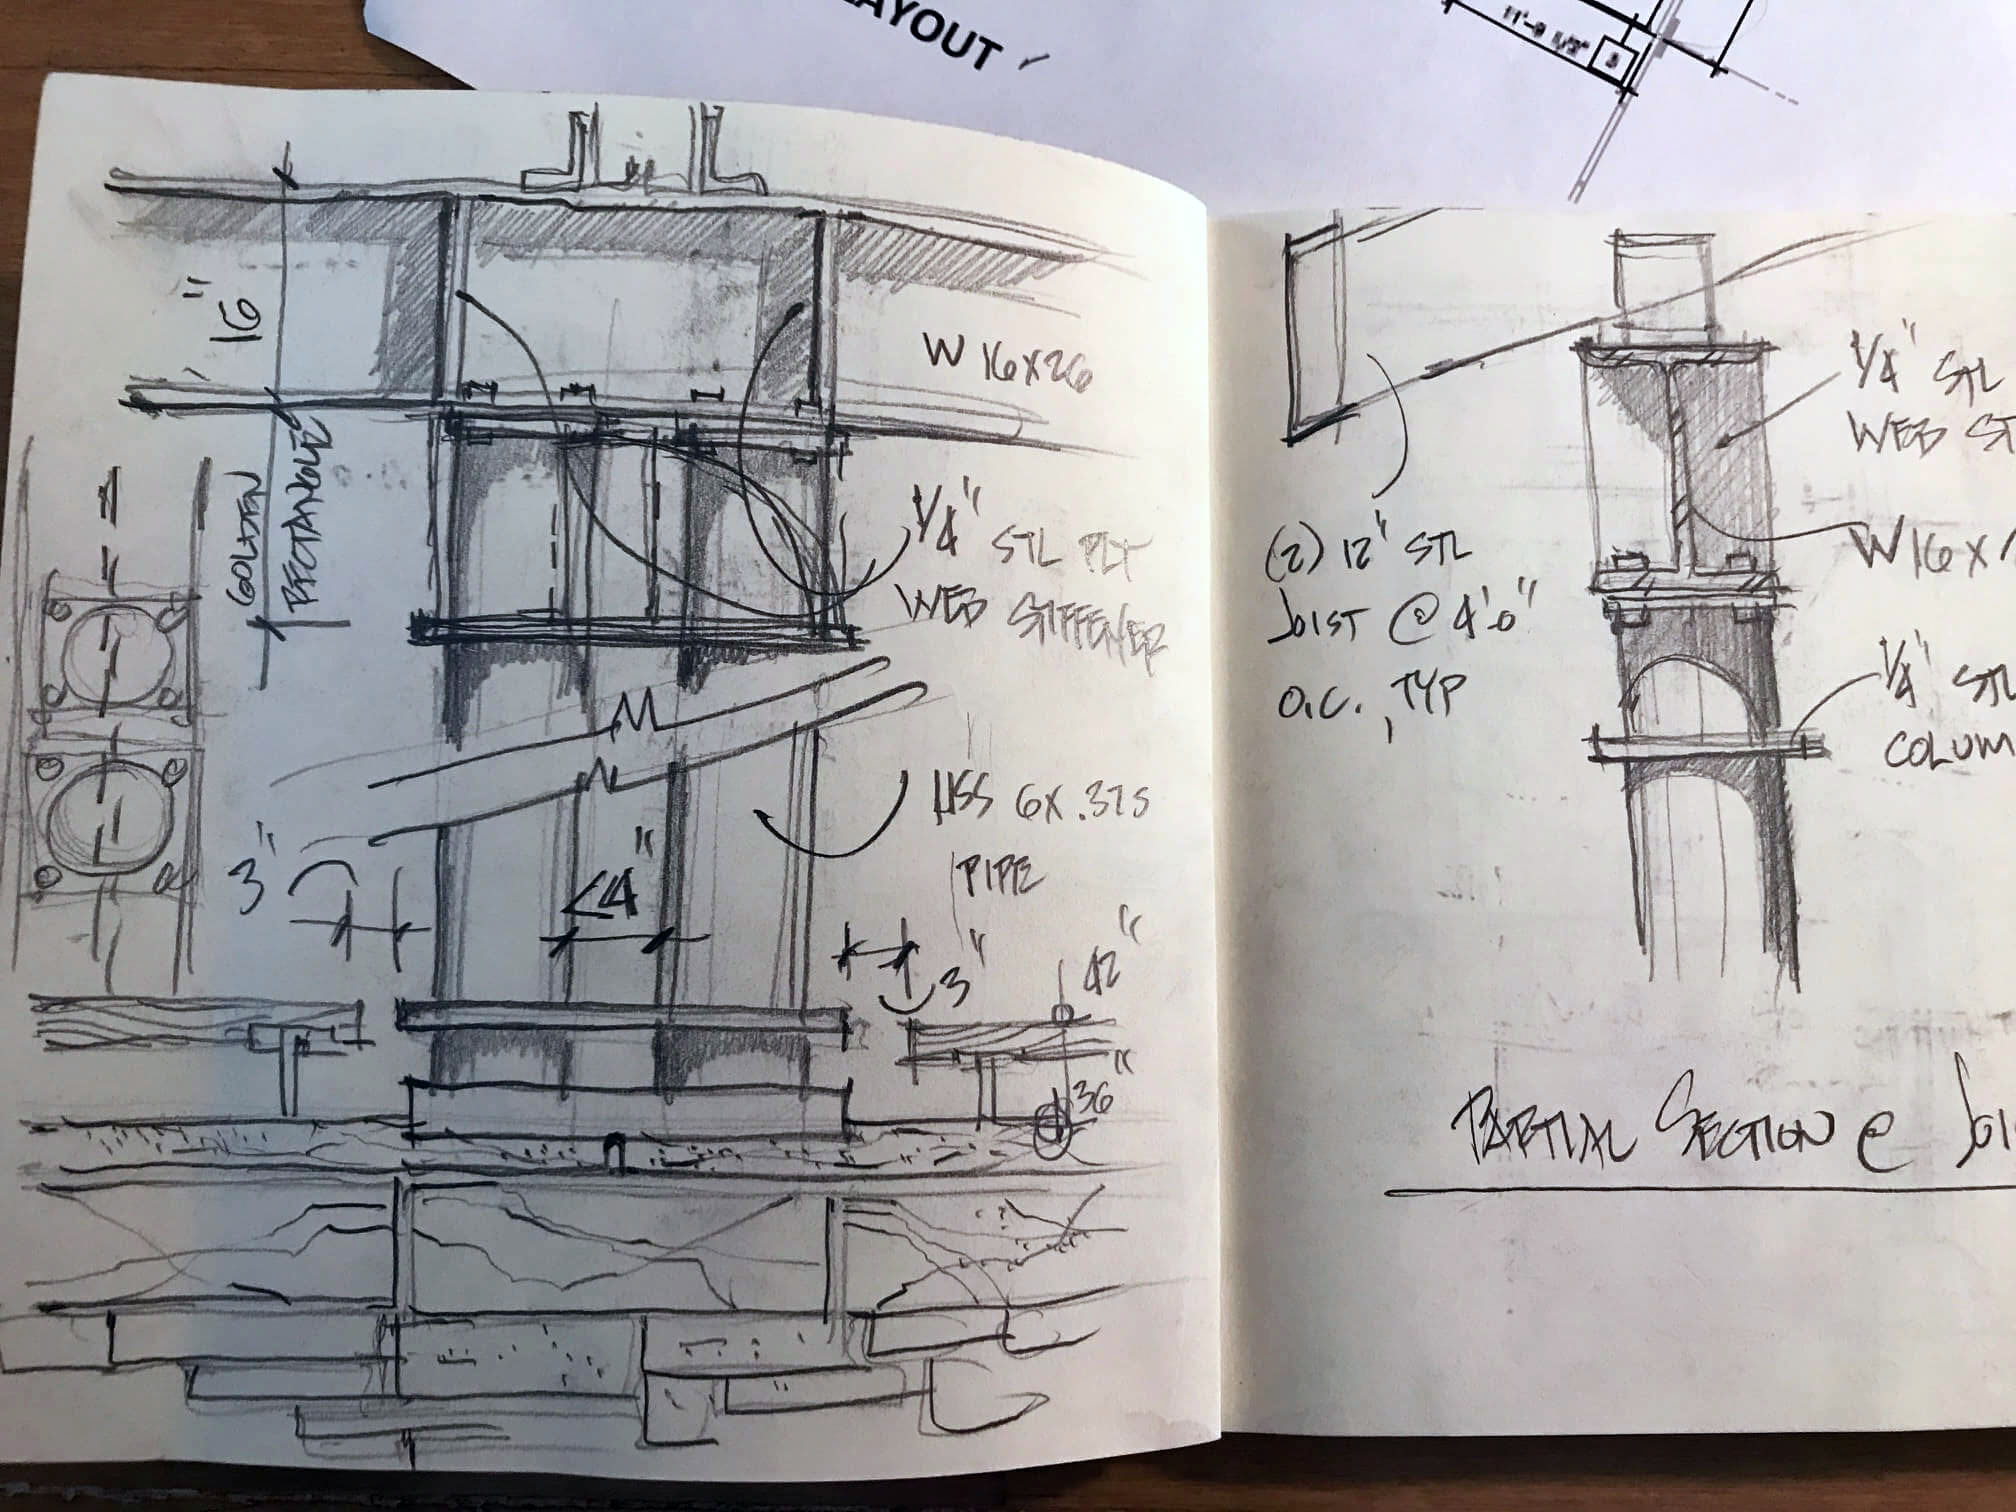 LAYOUT
11'-9 1/2"
16"
GOLDEN
RECTANGLE
W 16X26
1/4" STL PLT
WEB STIFFENER
HSS 6X.375
PIPE
3"
<4"
3"
42"
36"
(2) 12" STL
JOIST @ 4'-0"
O.C., TYP
1/4" STL
WEB ST
W16X
1/4" STL
COLUM
PARTIAL SECTION @ JOI